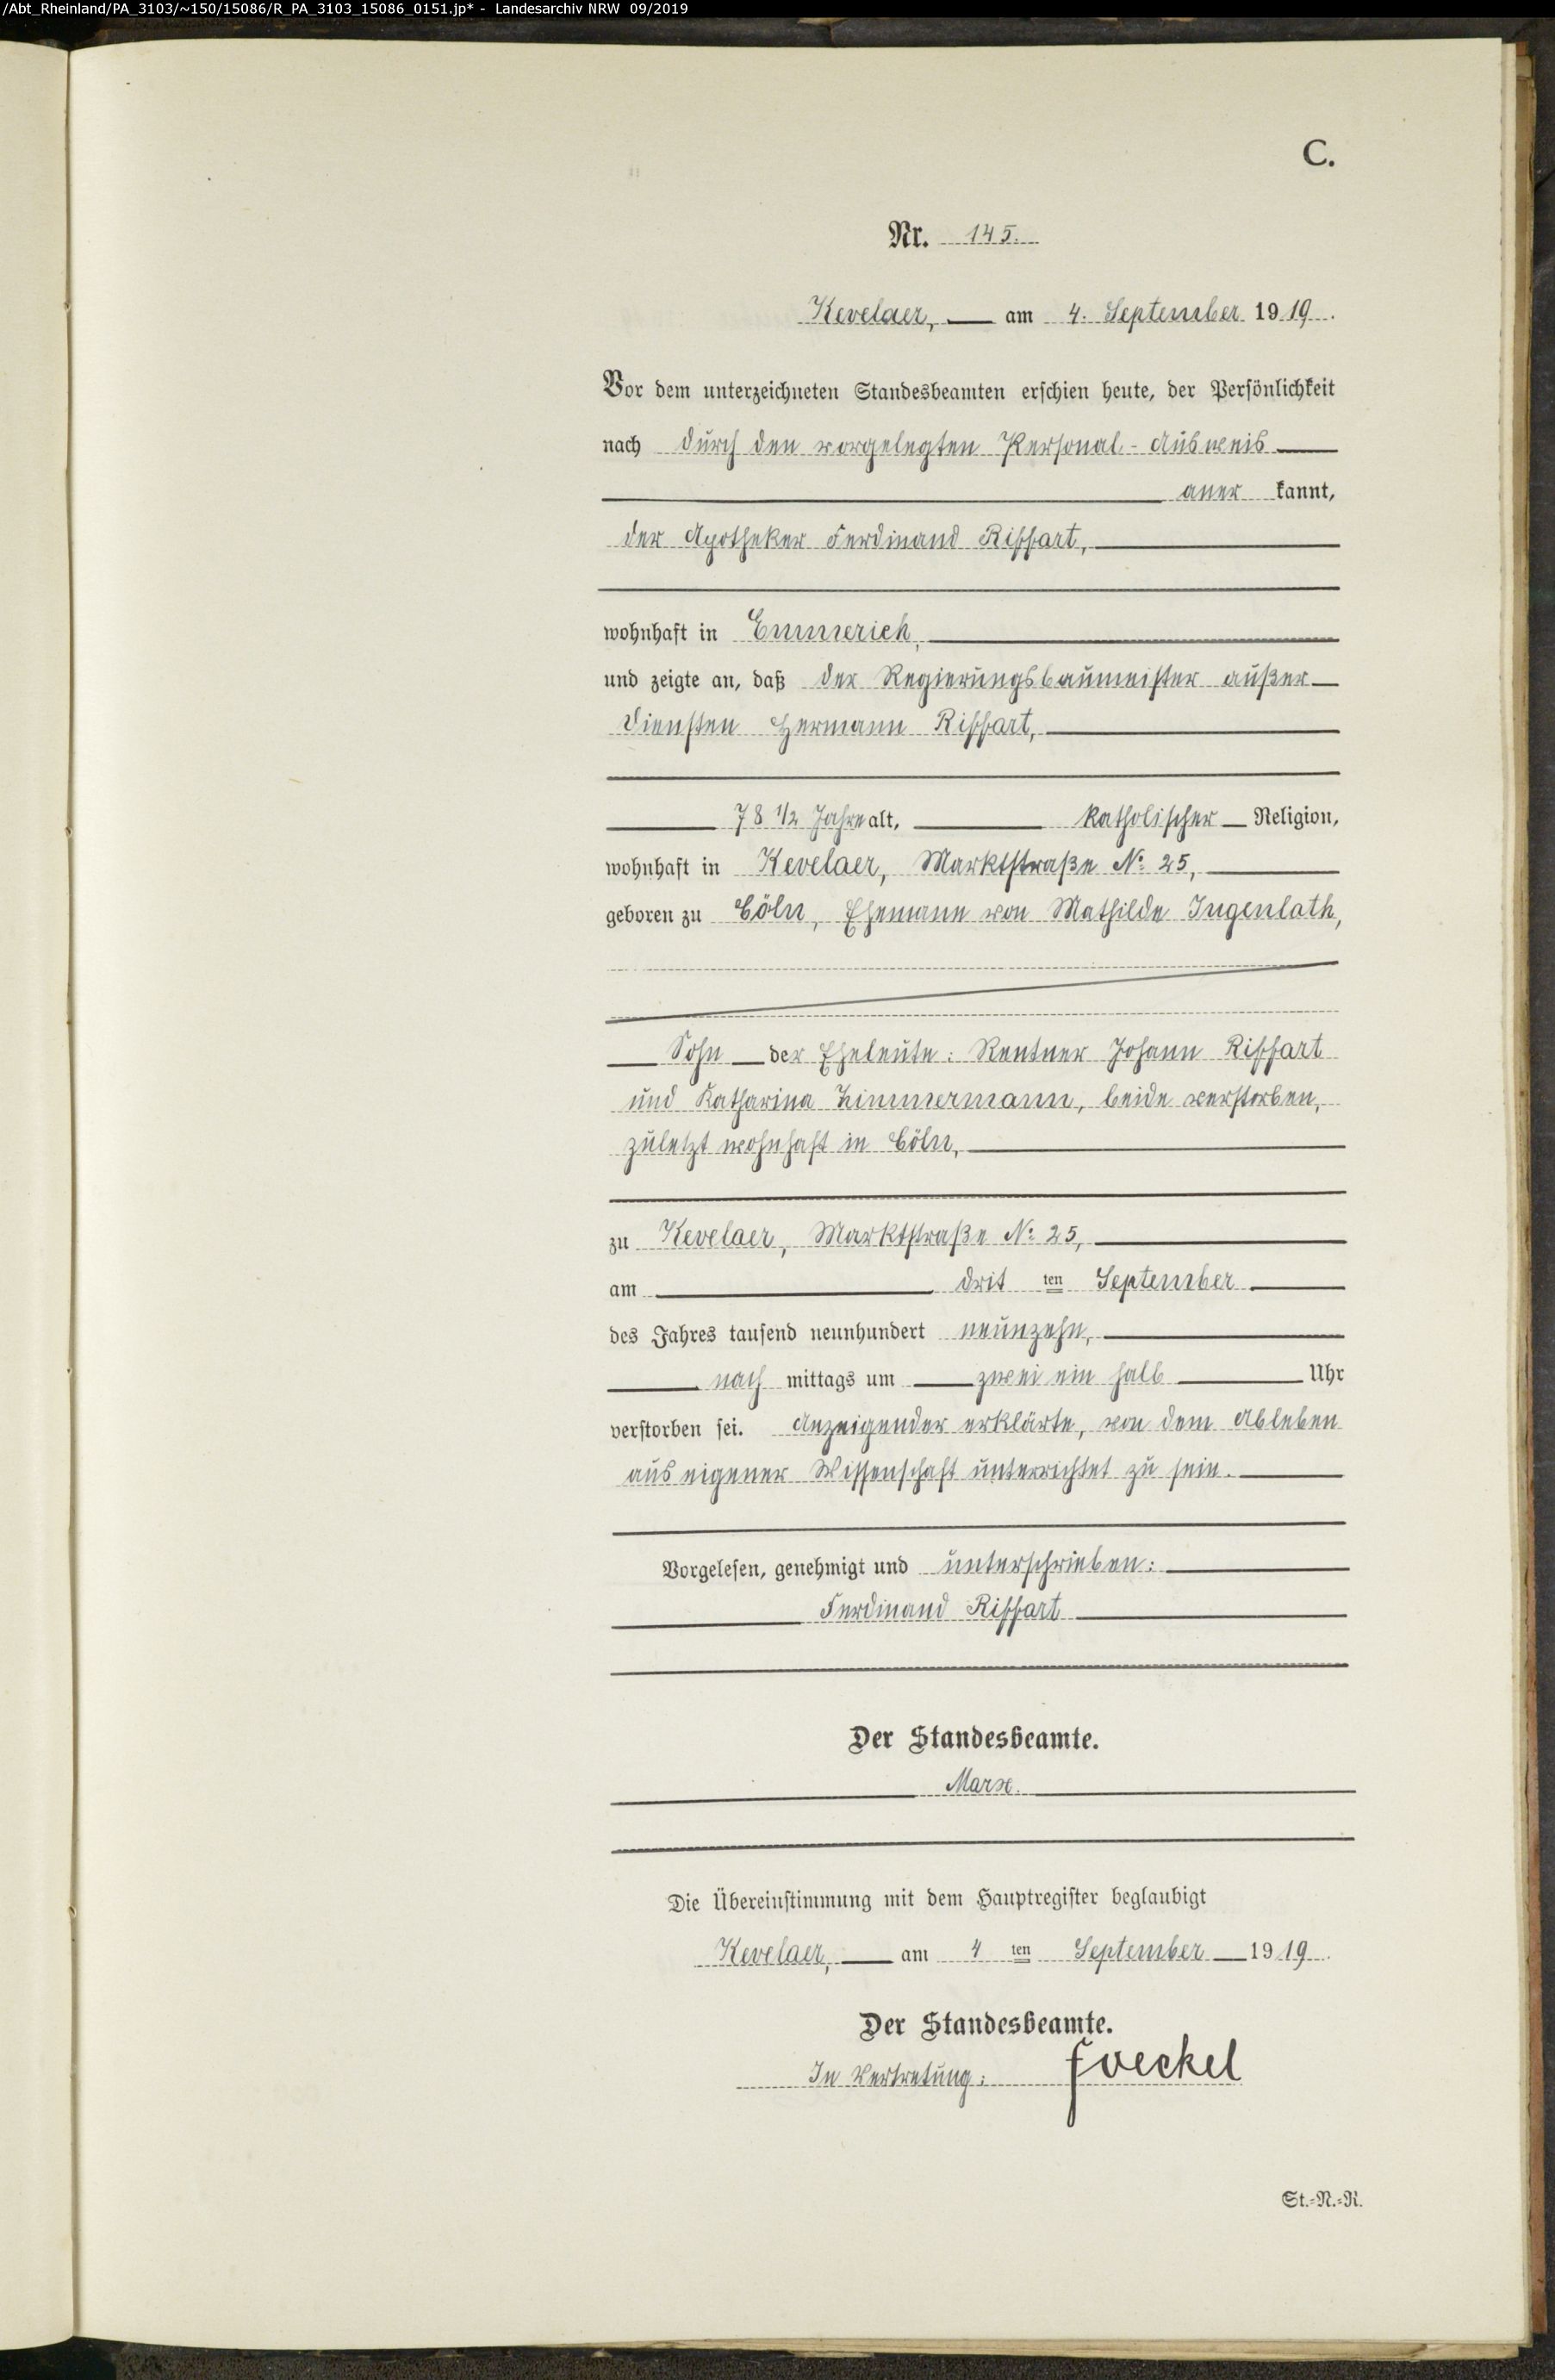 /Abt_Rheinland/PA_3103/~150/15086/R_PA_3103_15086_0151.jp* - Landesarchiv NRW 09/2019
C.
Nr. 145.
Kevelaer, am 4. September 1919.
Vor dem unterzeichneten Standesbeamten erschien heute, der Persönlichkeit
nach durch den vorgelegten Personal-Ausweis
aner kannt,
der Apotheker Ferdinand Riffart,
wohnhaft in Emmerich,
und zeigte an, daß der Regierungsbaumeister außer
Diensten Hermann Riffart,
78 1/2 Jahre alt, katholischer Religion,
wohnhaft in Kevelaer, Marktstraße No 25,
geboren zu Cöln, Ehemann von Mathilde Ingenlath,
Sohn der Eheleute: Rentner Johann Riffart
und Katharina Zimmermann, beide verstorben,
zuletzt wohnhaft in Cöln,
zu Kevelaer, Marktstraße No 25,
am drit ten September
des Jahres tausend neunhundert neunzehn,
nach mittags um zwei ein halb Uhr
verstorben sei. Anzeigender erklärte, von dem Ableben
aus eigener Wissenschaft unterrichtet zu sein.
Vorgelesen, genehmigt und unterschrieben:
Ferdinand Riffart
Der Standesbeamte.
Marx.
Die Übereinstimmung mit dem Hauptregister beglaubigt
Kevelaer, am 4 ten September 1919.
Der Standesbeamte.
In Vertretung:
St.-N.-R.